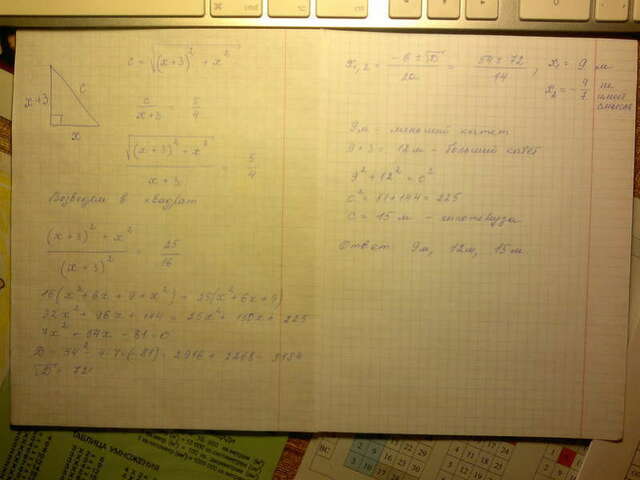 c = √((x+3)² + x²)
x+3
c
x
c/(x+3) = 5/4
√((x+3)² + x²)/(x+3) = 5/4
Возведем в квадрат
((x+3)² + x²)/(x+3)² = 25/16
16(x² + 6x + 9 + x²) = 25(x² + 6x + 9)
32x² + 96x + 144 = 25x² + 150x + 225
7x² - 54x - 81 = 0
D = 54² - 4·7·(-81) = 2916 + 2268 = 5184
√D = 72
x₁,₂ = (-b ± √D)/2a = (54 ± 72)/14, x₁ = 9 м
x₂ = -9/7 не
имеет
смысла
9 м - меньший катет
9 + 3 = 12 м - больший катет
9² + 12² = c²
c² = 81 + 144 = 225
c = 15 м - гипотенуза
Ответ 9м, 12м, 15м
ТАБЛИЦА УМНОЖЕНИЯ
ВС